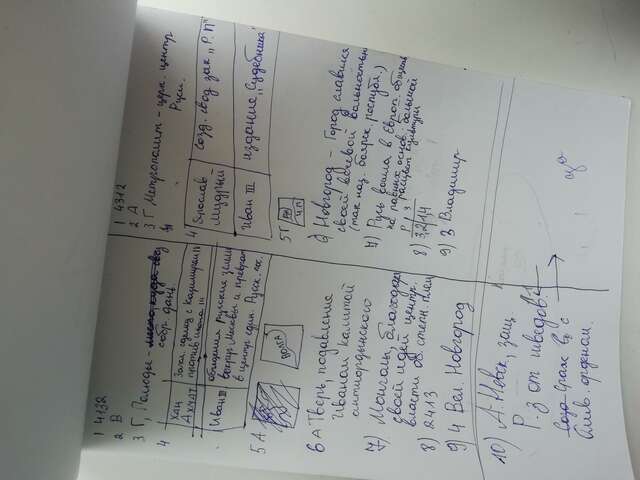 1 4132
2 В
3 Г, Полюды -
собр. дань.
4
Хан Ахмат
Закл. сделку с Казимиром
против Ивана III
Иван III
объединил Русские земли
вокруг Москвы и преврат.
в центр един. Русск. гос.
5 А
ВОЛГА
6 А Тверь, подавление
Иваном Калитой
антиордынского
7) Монголы, благодар
своей идеи центр.
власти об. степн. плем
8) 2413
9) 4 Вел. Новгород
10) А. Невск, защ
Р. з. от шведов
с
Лив. орденом.
1 4312
2 А
3 Г Метрополит - церк. центр
Руси.
4
Ярослав
Мудрый
созд. свод зак "Р.П"
Иван III
издание "Судебника"
5 Г
6) Новгород - Город славился
своей вечевой вольностью
(так наз. боярск республ.)
7) Русь вошла в Европ. общение
на равных основ. большой
расцвет культуры
8) 3214
9) 3 Владимир